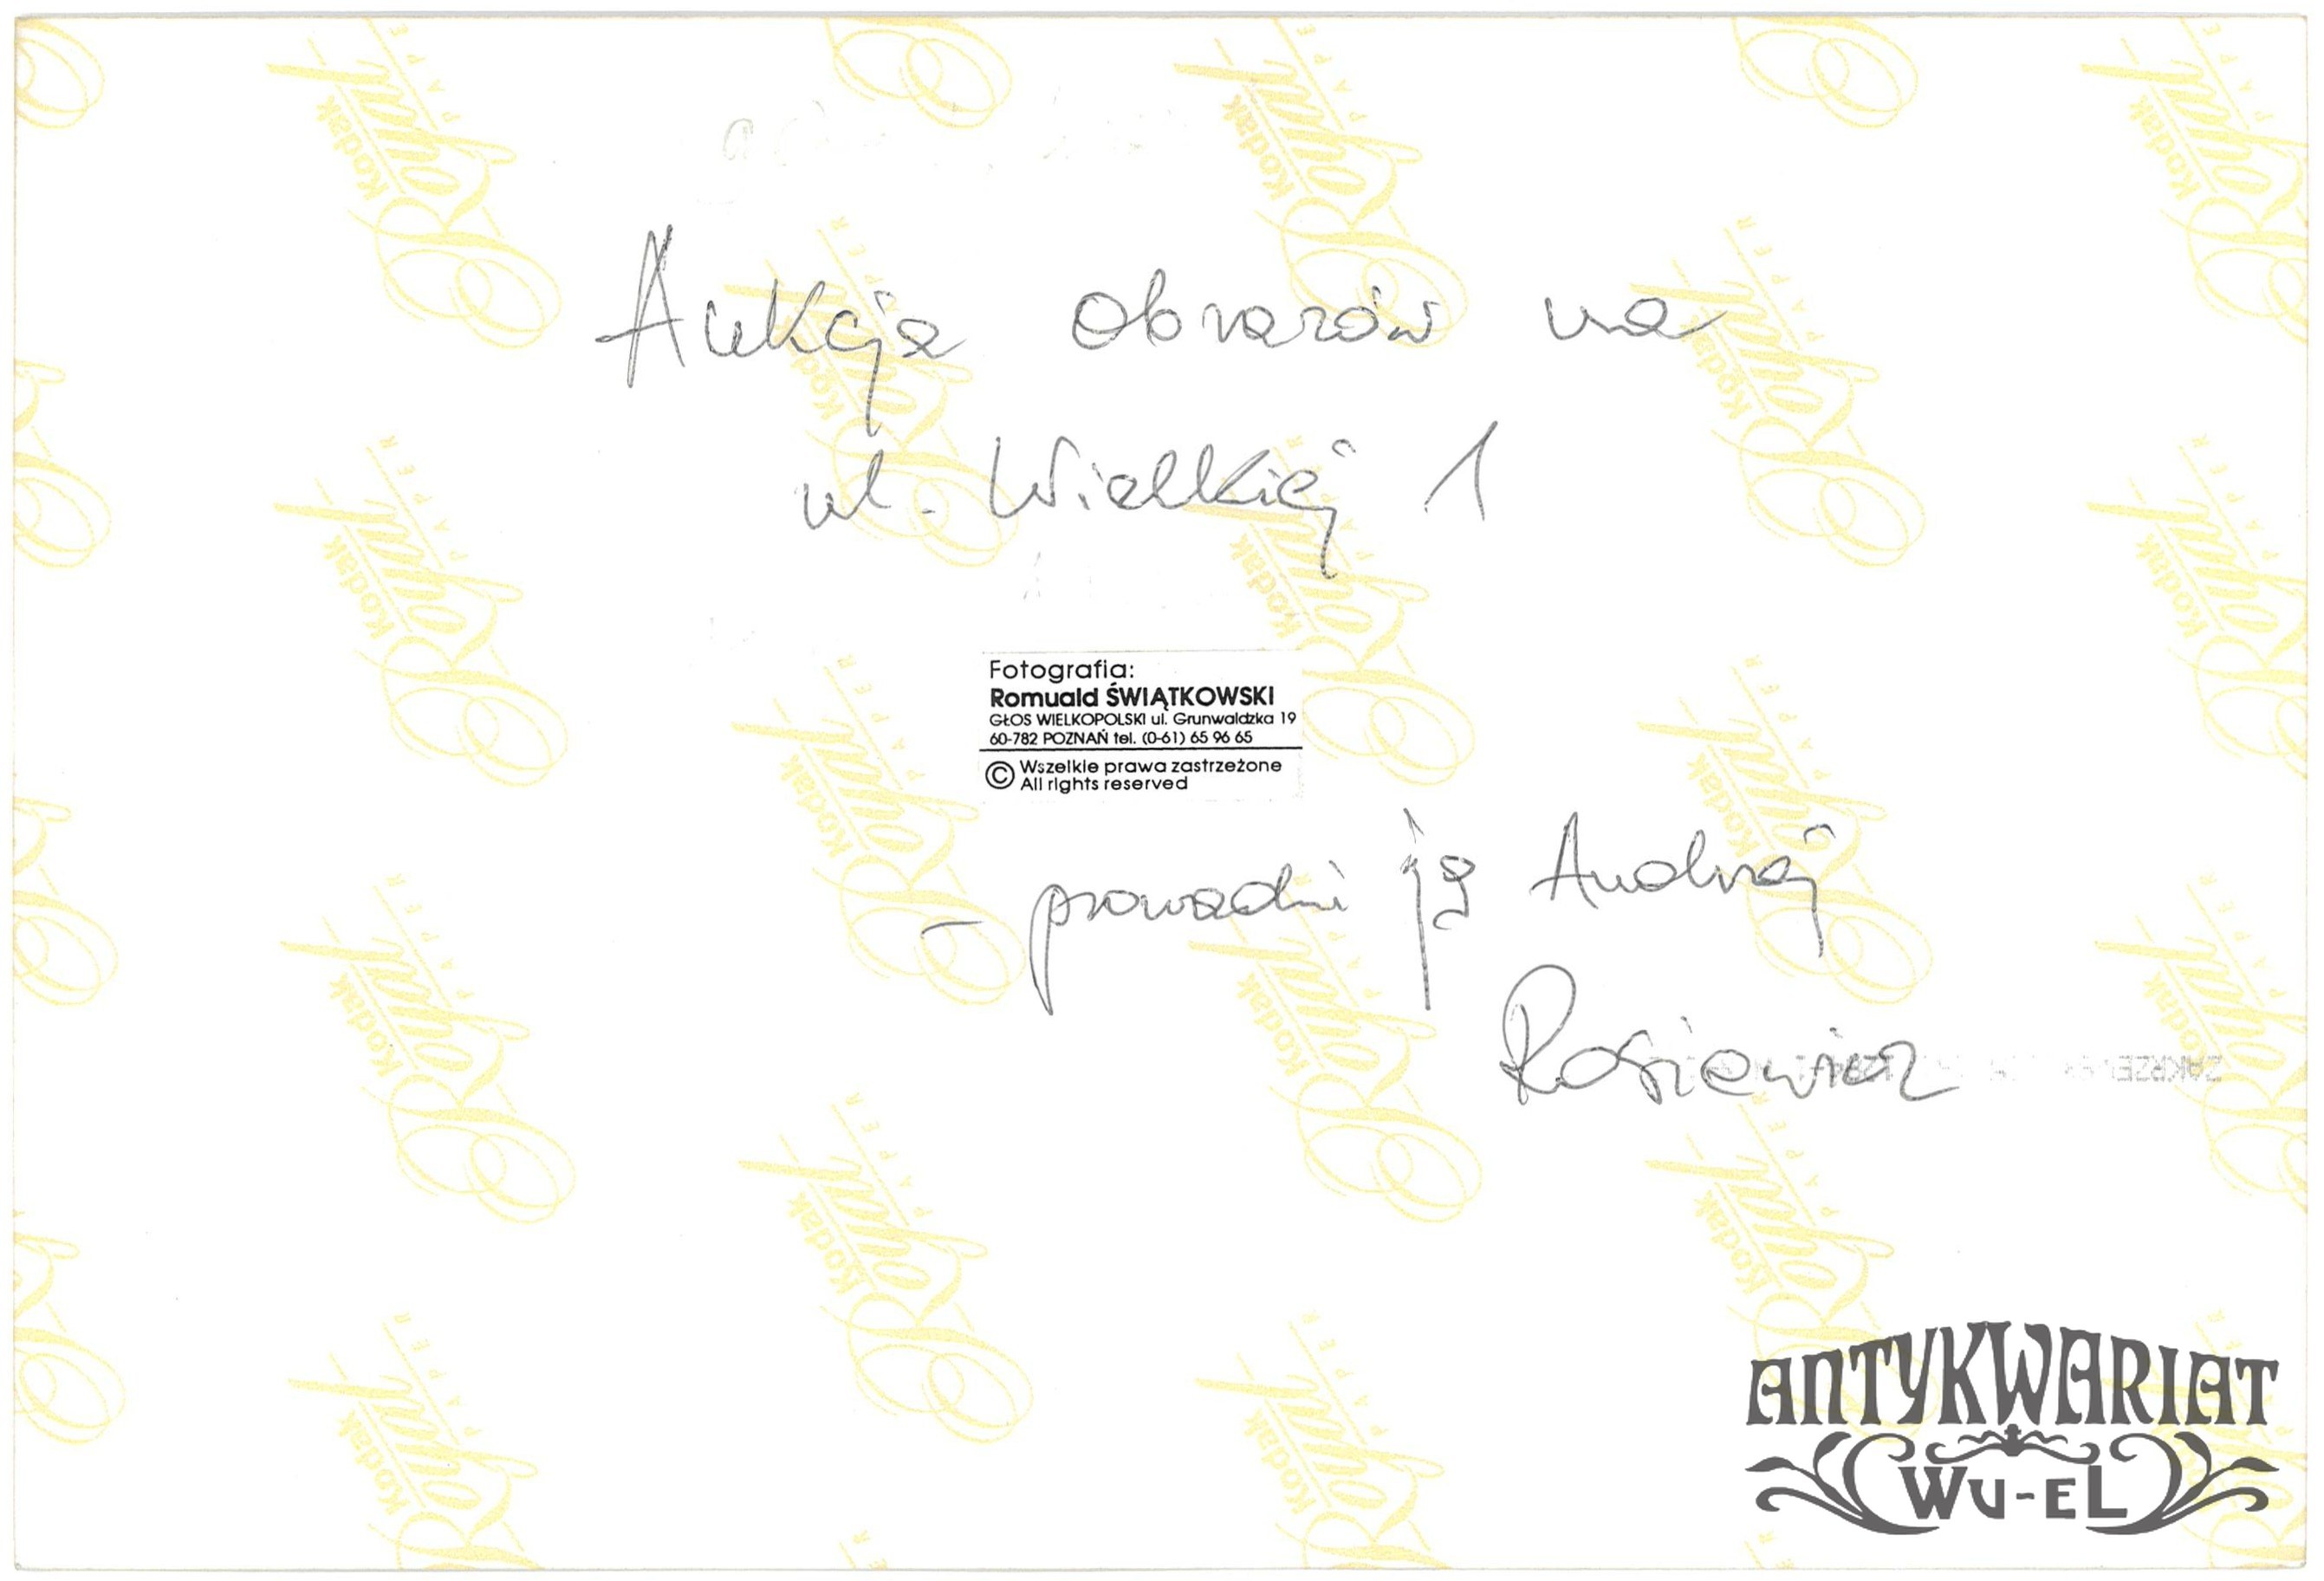 Aukcja obrazów na
ul. Wielkiej 1
Fotografia:
Romuald ŚWIĄTKOWSKI
GŁOS WIELKOPOLSKI ul. Grunwaldzka 19
60-782 POZNAŃ tel. (0-61) 65 96 65
© Wszelkie prawa zastrzeżone
All rights reserved
- prowadzi ją Andrzej
Rosiewicz
Kodak Royal PAPER
ANTYKWARIAT
WU-EL